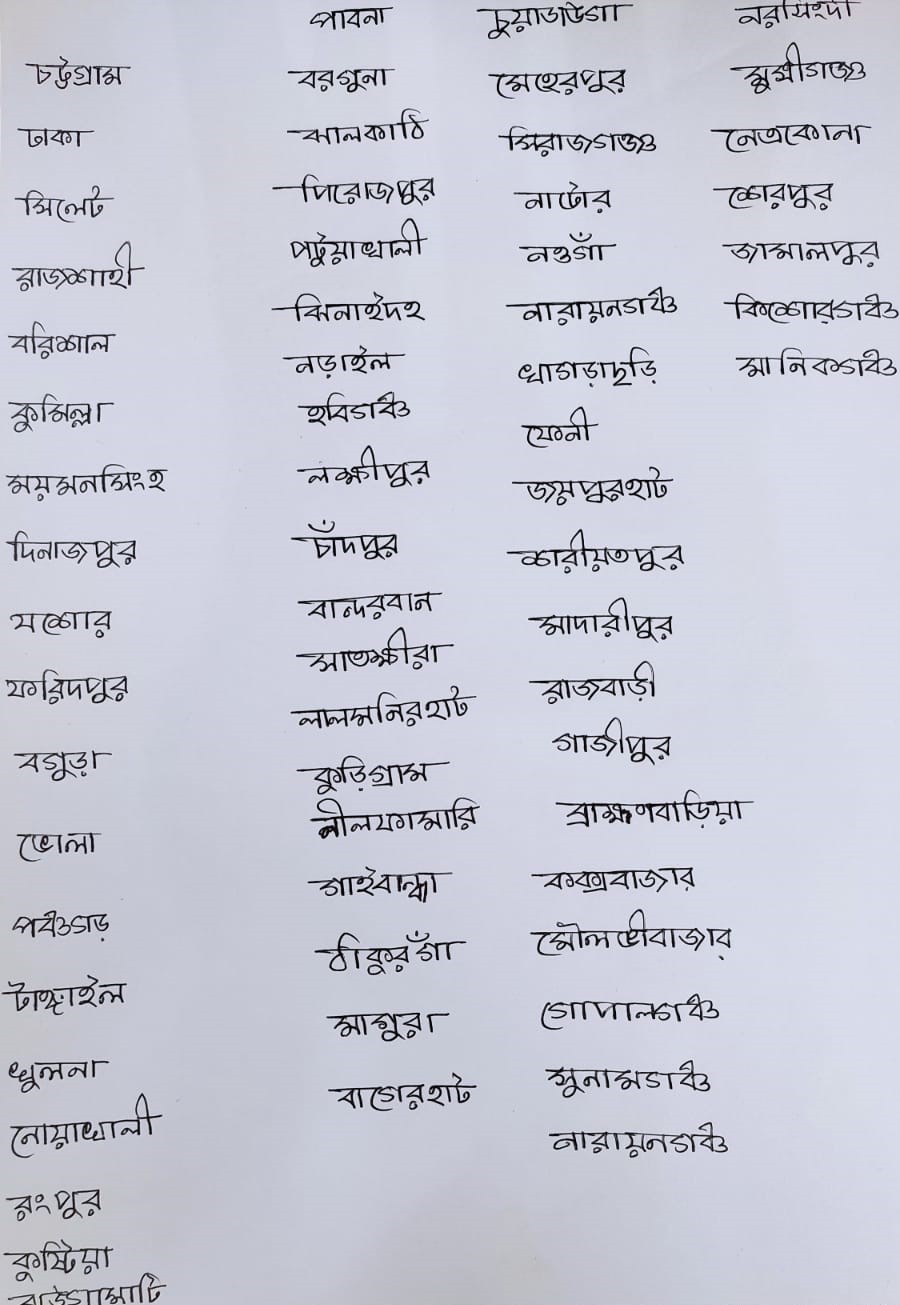 চট্টগ্রাম
ঢাকা
সিলেট
রাজশাহী
বরিশাল
কুমিল্লা
ময়মনসিংহ
দিনাজপুর
যশোর
ফরিদপুর
বগুড়া
ভোলা
পঞ্চগড়
টাঙ্গাইল
খুলনা
নোয়াখালী
রংপুর
কুষ্টিয়া
রাঙামাটি
পাবনা
বরগুনা
ঝালকাঠি
পিরোজপুর
পটুয়াখালী
ঝিনাইদহ
নড়াইল
হবিগঞ্চ
লক্ষীপুর
চাঁদপুর
বান্দরবান
সাতক্ষীরা
লালমনিরহাট
কুড়িগ্রাম
নীলফামারি
গাইবান্ধা
ঠাকুরগাঁ
মাগুরা
বাগেরহাট
চুয়াডাঙ্গা
মেহেরপুর
সিরাজগঞ্জ
নাটোর
নওগাঁ
নারায়নগঞ্চ
খাগড়াছড়ি
ফেনী
জয়পুরহাট
শরীয়তপুর
মাদারীপুর
রাজবাড়ী
গাজীপুর
ব্রাহ্মণবাড়িয়া
কক্সবাজার
মৌলভীবাজার
গোপালগঞ্চ
সুনামগঞ্চ
নারায়নগঞ্চ
নরসিংদী
মুন্সীগঞ্জ
নেত্রকোনা
শেরপুর
জামালপুর
কিশোরগঞ্চ
মানিকগঞ্চ